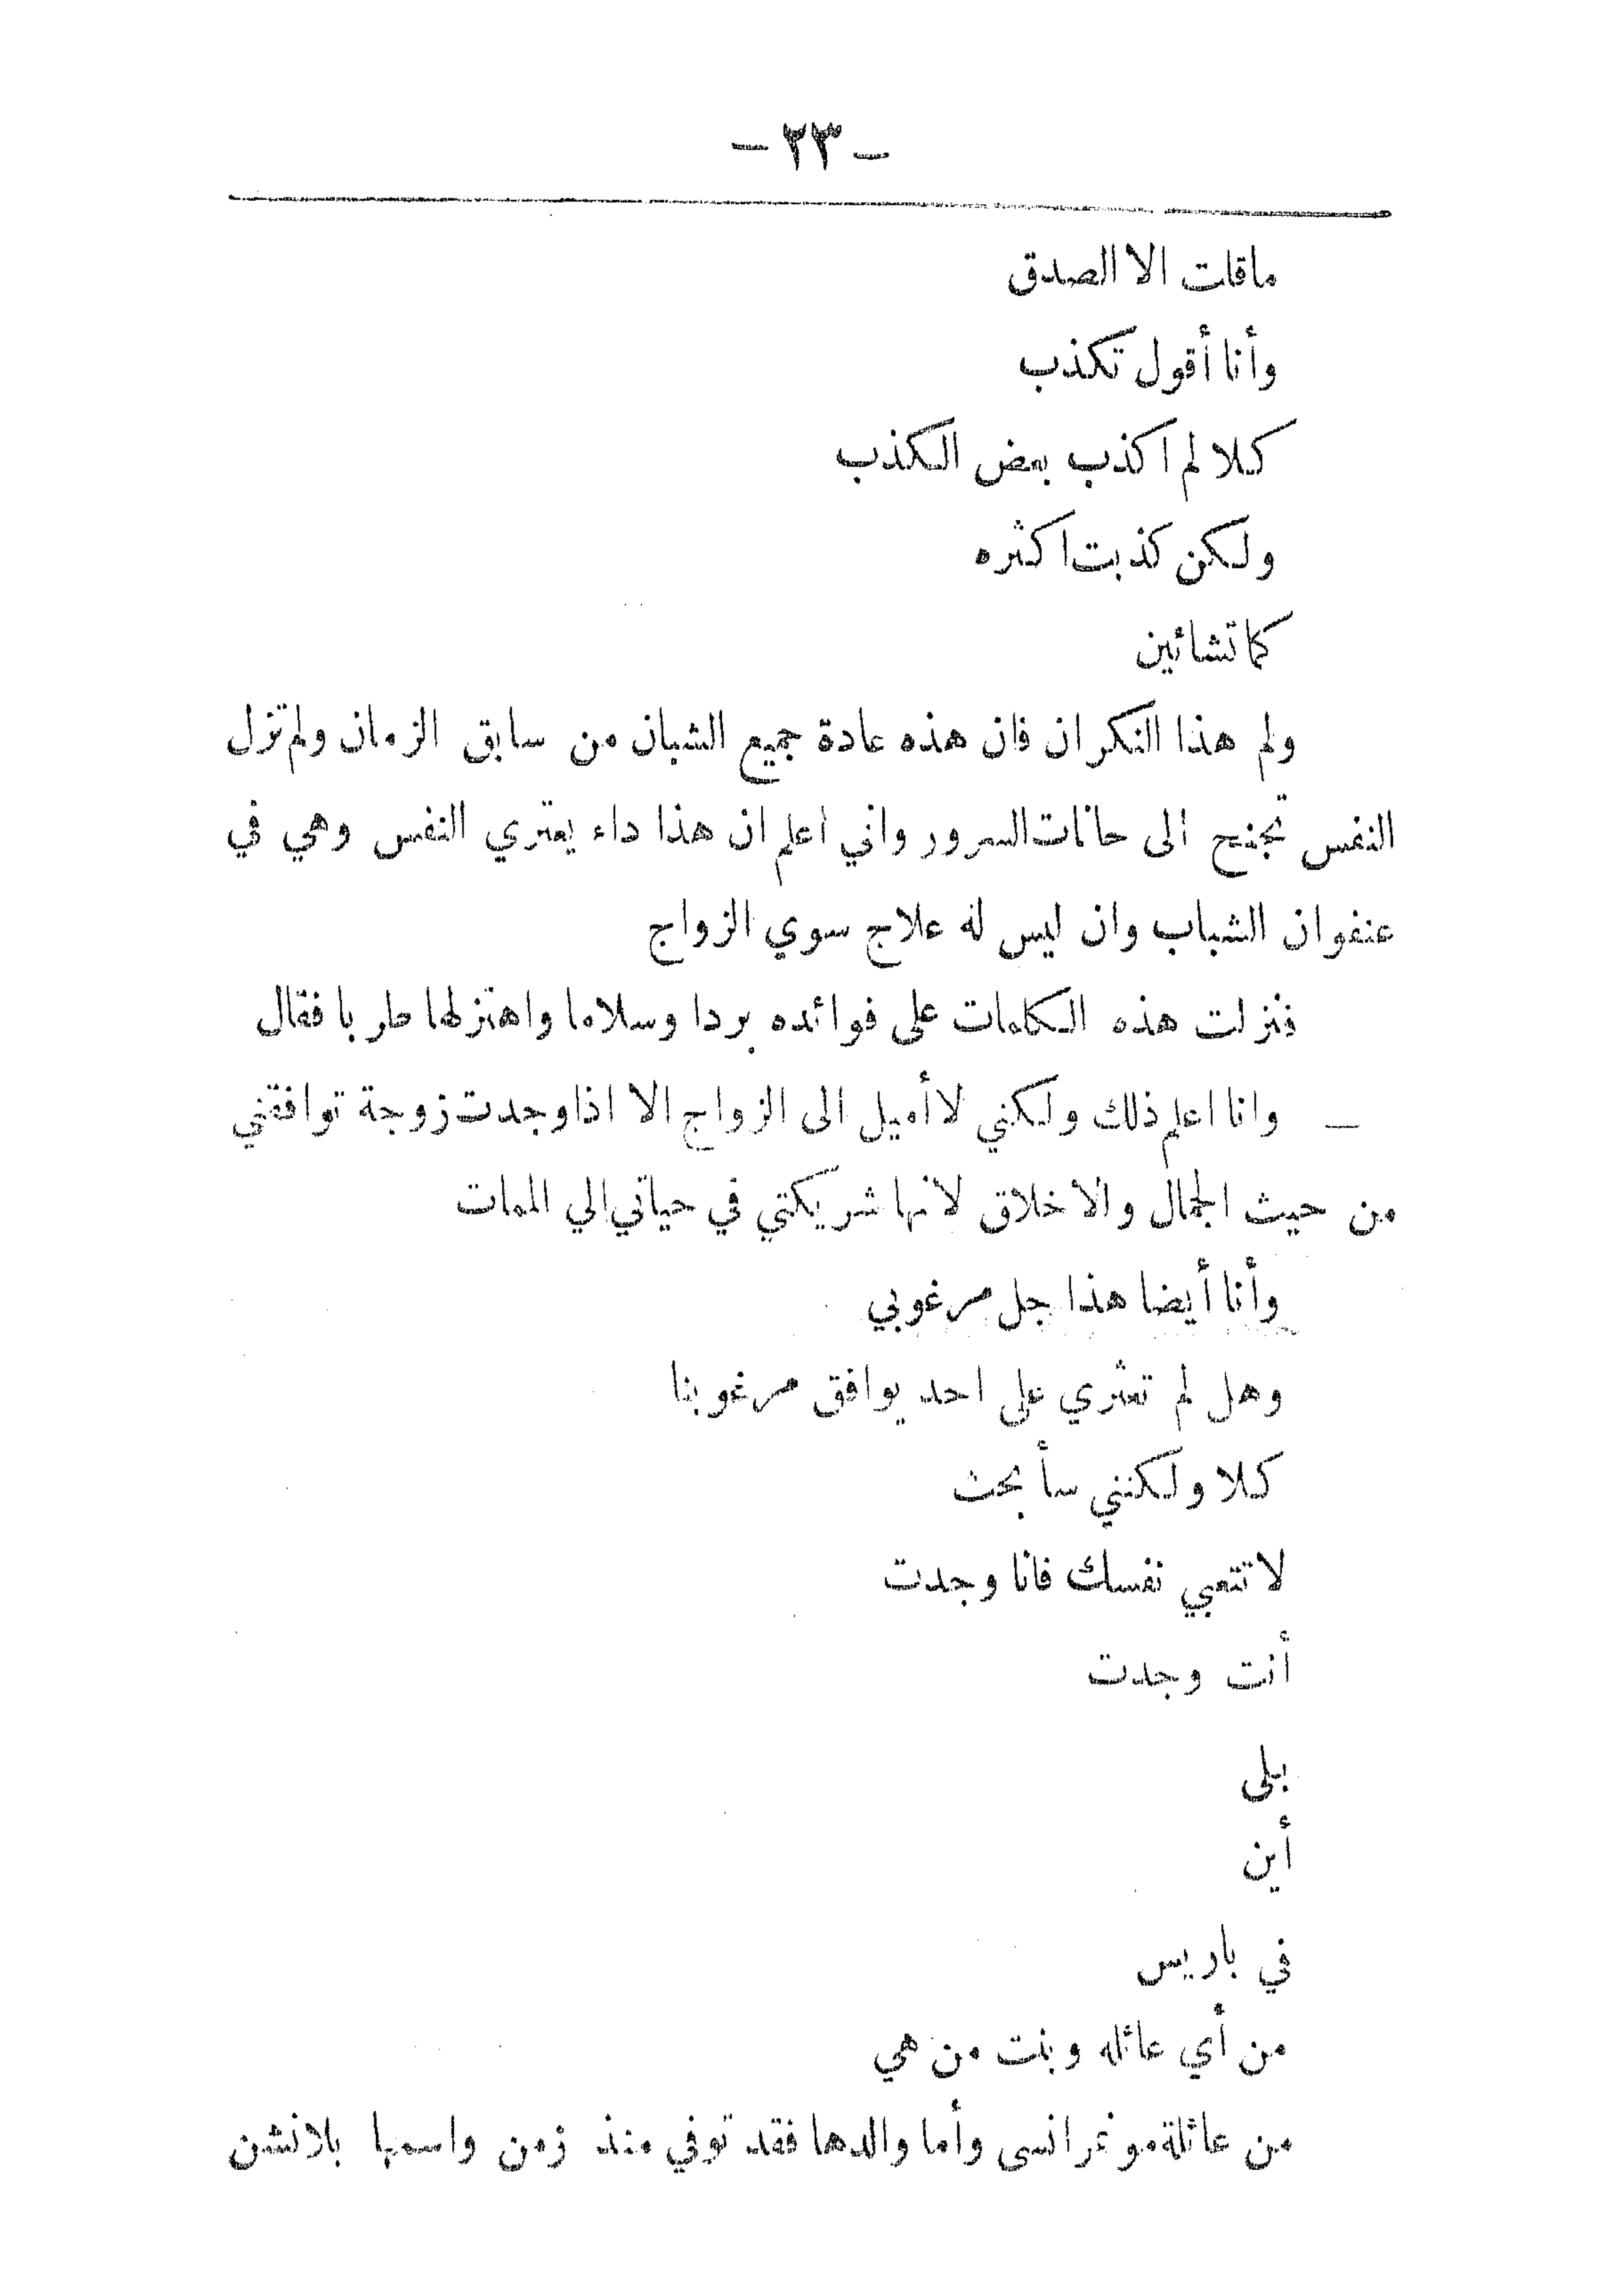 - ٢٣ -
ماقلت الا الصدق
وأنا أقول تكذب
كلا لم اكذب بعض الكذب
ولكن كذبت اكثره
كما تشائين
ولم هذا النكران فان هذه عادة جميع الشبان من سابق الزمان ولم تزل
النفس تجنح الى حانات السرور واني اعلم ان هذا داء يعتري النفس وهي في
عنفوان الشباب وان ليس له علاج سوي الزواج
فنزلت هذه الكلمات على فوائده بردا وسلاما واهتز لها طربا فقال
— وانا اعلم ذلك ولكني لا أميل الى الزواج الا اذا وجدت زوجة توافقني
من حيث الجمال والاخلاق لانها شريكتي في حياتي الي الممات
وأنا أيضا هذا جل مرغوبي
وهل لم تعثري على احد يوافق مرغوبنا
كلا ولكنني سأبحث
لا تتعبي نفسك فانا وجدت
أنت وجدت
بلى
أين
في باريس
من أي عائله وبنت من هي
من عائلة مونرانسى وأما والدها فقد توفي منذ زمن واسمها بلانشن